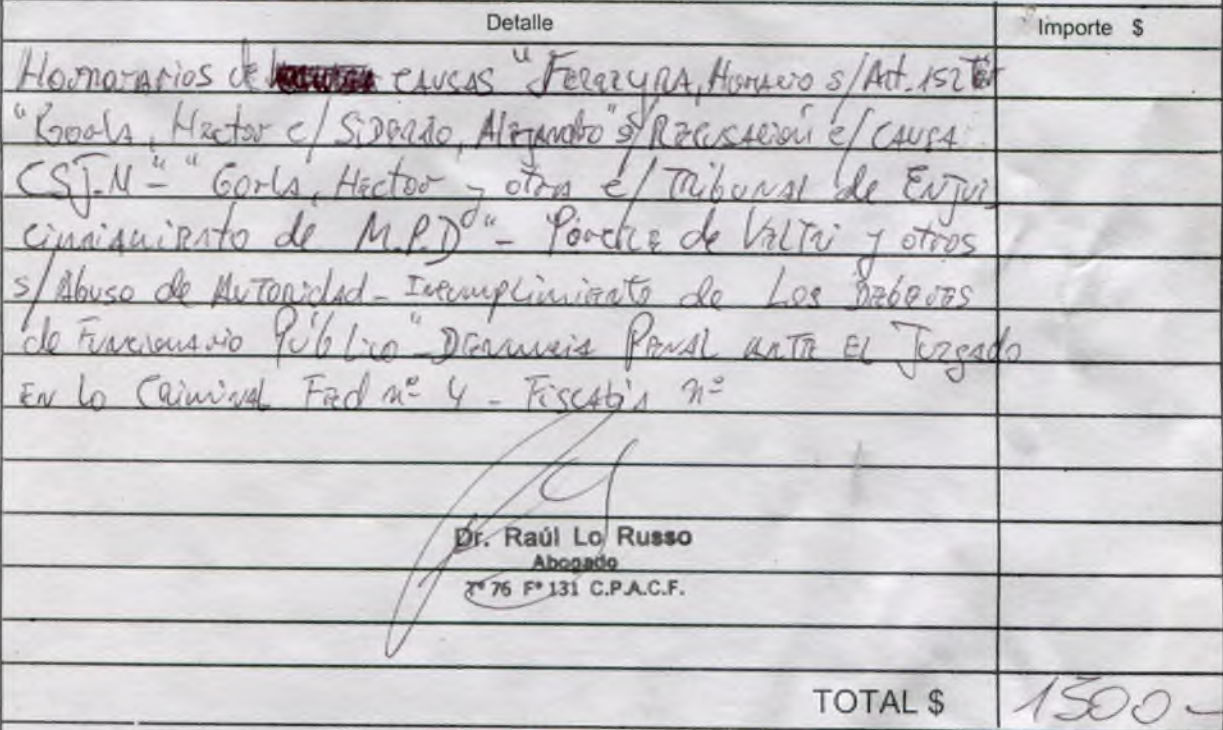 Detalle
Importe $
Honorarios de causas "Ferreyra, Horacio s/Art. 152 Ter
Hector c/ Siderio, Alejandro" s/ Recusación c/ Causa
CSJ-N - "Gorla, Hector y otros c/ Tribunal de Enjui
ciamiento de M.P.D" - de y otros
s/ Abuso de Autoridad - Incumplimiento de Los Deberes
de Funcionario Público" Denuncia Penal ante EL Juzgado
En lo Criminal Fed nº 4 - Fiscalía nº
Dr. Raúl Lo Russo
Abogado
Tº 76 Fº 131 C.P.A.C.F.
TOTAL $ 1500-